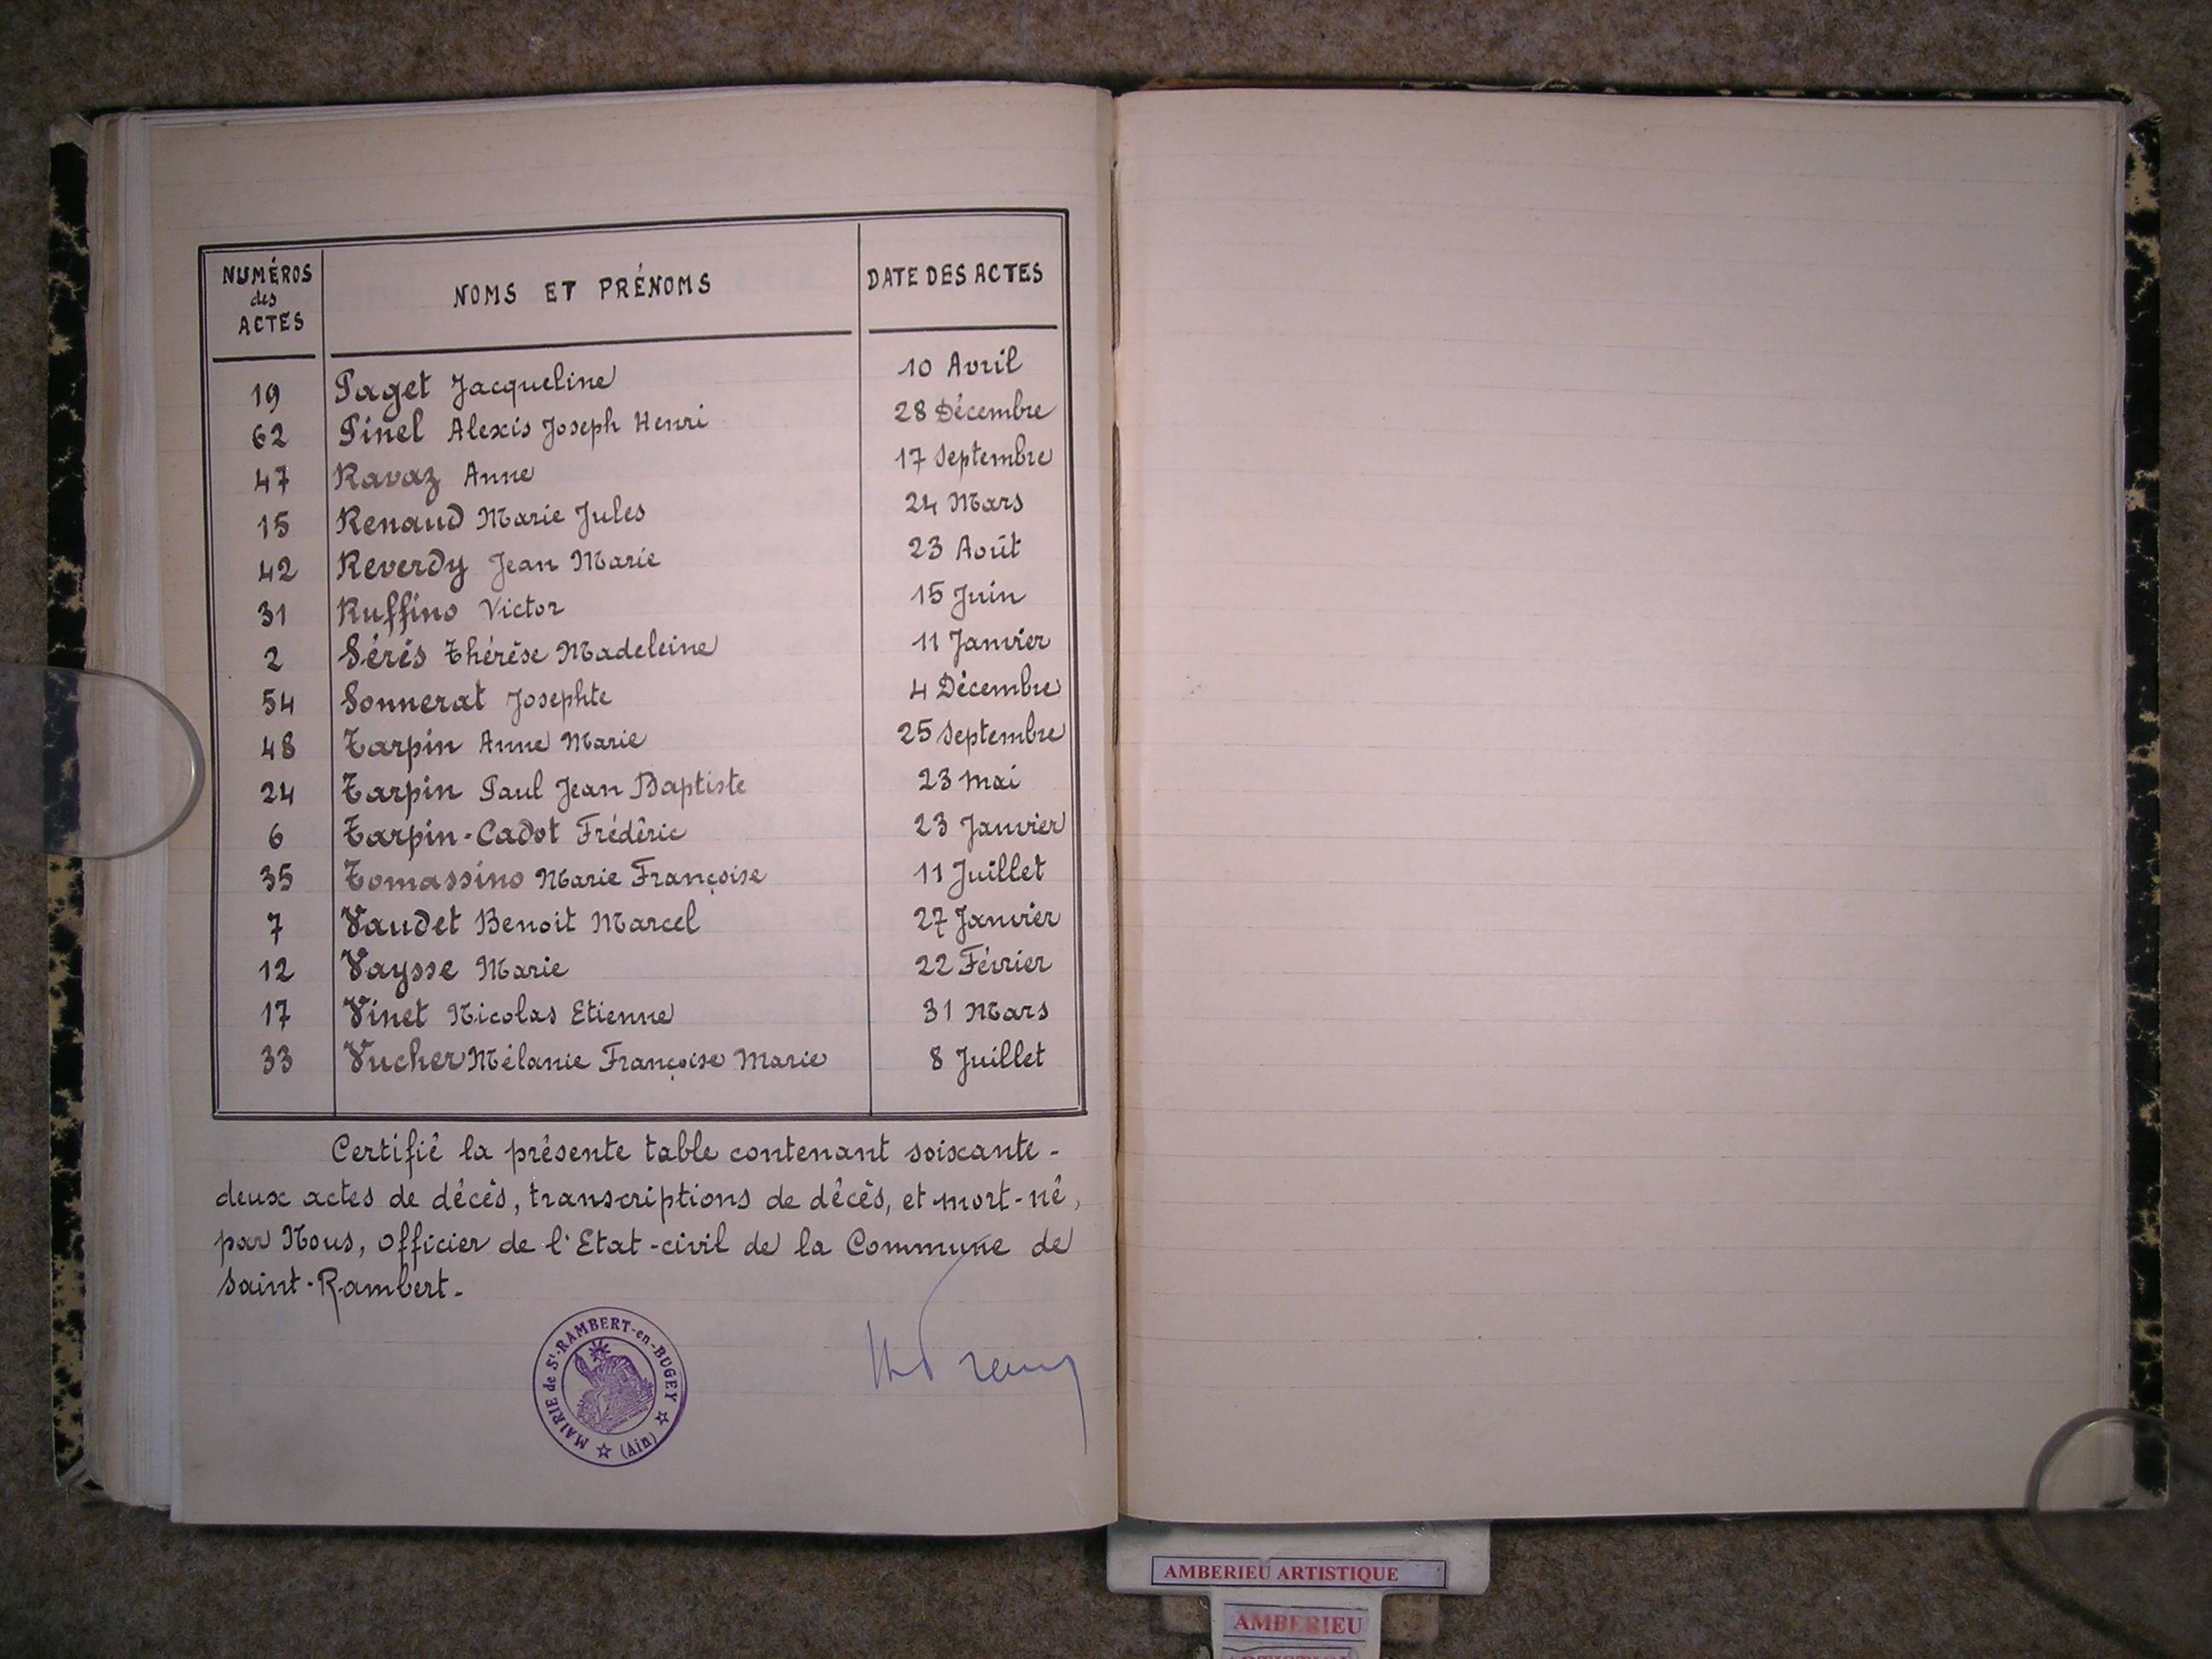 NUMÉROS des ACTES | NOMS ET PRÉNOMS | DATE DES ACTES
19 Paget Jacqueline 10 Avril
62 Pinel Alexis Joseph Henri 28 Décembre
47 Ravaz Anne 17 Septembre
15 Renaud Marie Jules 24 Mars
42 Reverdy Jean Marie 23 Août
31 Ruffino Victor 15 Juin
2 Séris Thérèse Madeleine 11 Janvier
54 Sonnerat Josephte 4 Décembre
48 Tarpin Anne Marie 25 Septembre
24 Tarpin Paul Jean Baptiste 23 Mai
6 Tarpin-Cadot Frédéric 23 Janvier
35 Tomassino Marie Françoise 11 Juillet
7 Vaudet Benoit Marcel 27 Janvier
12 Vaysse Marie 22 Février
17 Vinet Nicolas Etienne 31 Mars
33 Vucher Mélanie Françoise Marie 8 Juillet
Certifié la présente table contenant soixante-
deux actes de décès, transcriptions de décès, et mort-né,
par Nous, officier de l'Etat-civil de la Commune de
Saint-Rambert.
MAIRIE de St-RAMBERT-en-BUGEY ☆ (Ain) ☆
AMBERIEU ARTISTIQUE
AMBERIEU